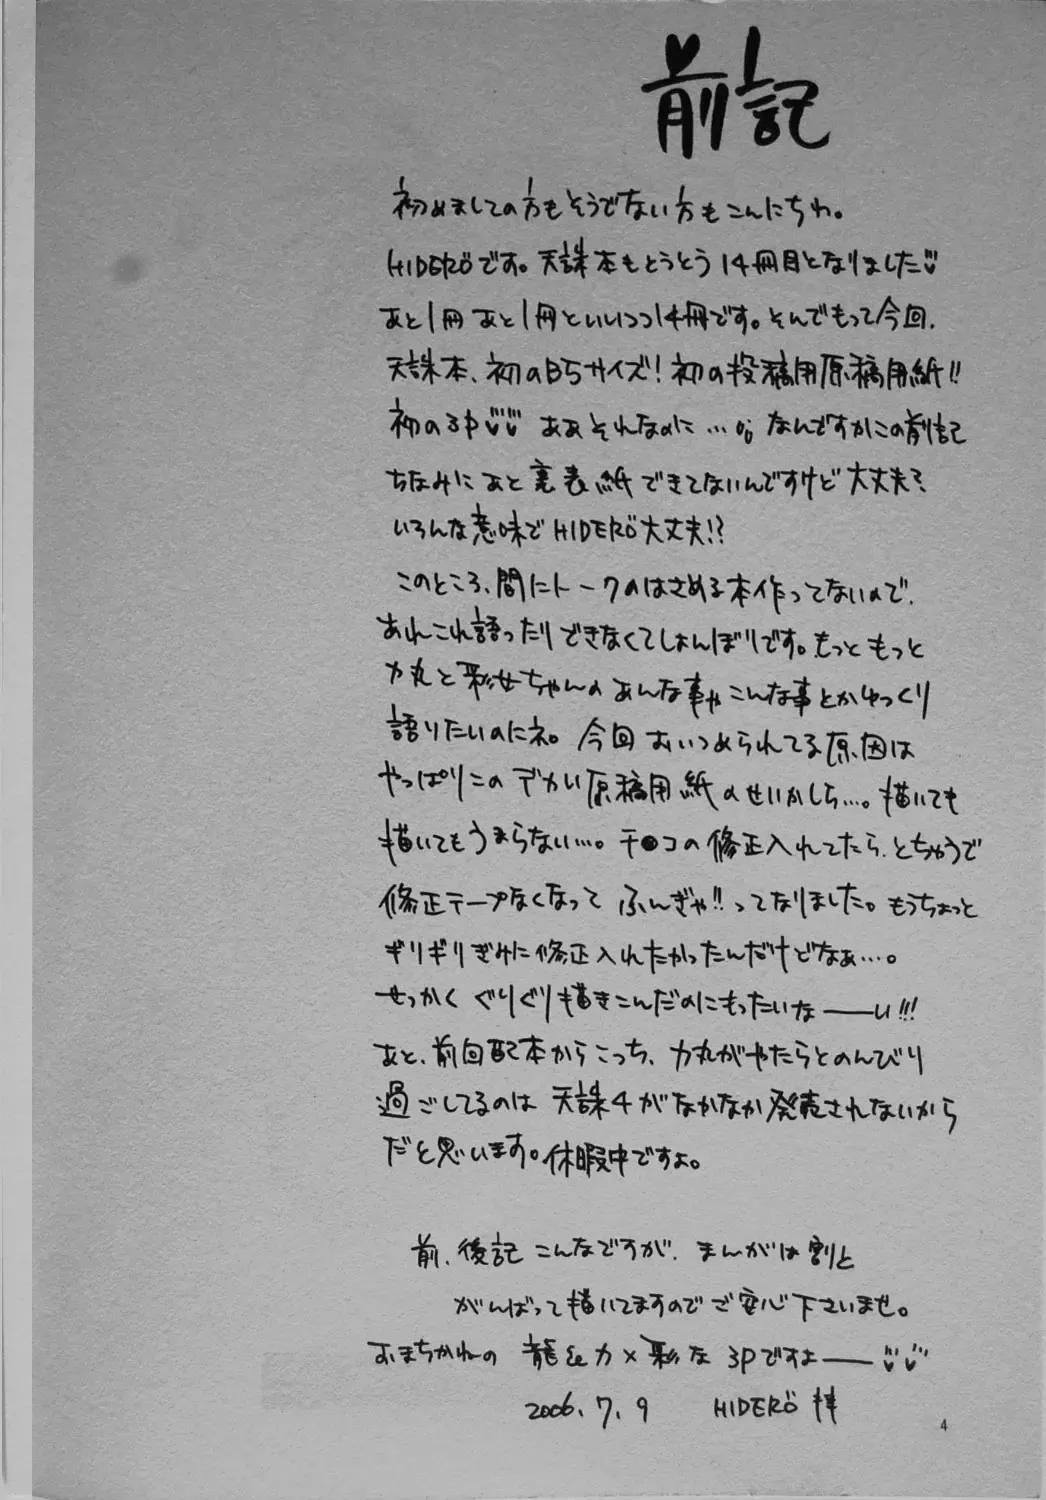 前記
初めましての方もそうでない方もこんにちわ。
HIDERÖです。天誅本もとうとう14冊目となりました
あと1冊あと1冊といいつつ14冊です。そんでもって今回、
天誅本、初のB5サイズ!初の投稿用原稿用紙!!
初の3P ああそれなのに…。なんですかこの前記
ちなみにあと裏表紙できてないんですけど大丈夫?
いろんな意味でHIDERÖ大丈夫!?
このところ、間にトークのはさめる本作ってないので、
あれこれ語ったりできなくてしょんぼりです。もっともっと
力丸と彩女ちゃんのあんな事やこんな事とかゆっくり
語りたいのにネ。今回おいつめられてる原因は
やっぱりこのデカい原稿用紙のせいかしら…。描いても
描いてもうまらない…。チ●コの修正入れてたら、とちゅうで
修正テープなくなって ふんぎゃ!!ってなりました。もうちょっと
ギリギリぎみに修正入れたかったんだけどなぁ…。
せっかくぐりぐり描きこんだのにもったいなーーい!!!
あと、前回配本からこっち、力丸がやたらとのんびり
過ごしてるのは 天誅4がなかなか発売されないから
だと思います。休暇中ですよ。
前、後記こんなですが、まんがは割と
がんばって描いてますのでご安心下さいませ。
おまちかねの 龍&力×彩な 3Pですよーー
2006.7.9 HIDERÖ 拝
4